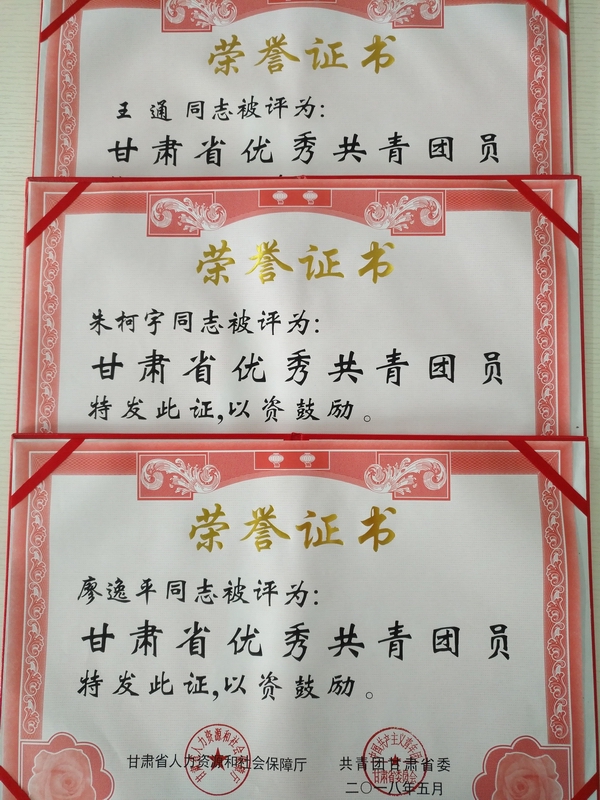 荣誉证书
王通同志被评为:
甘肃省优秀共青团员
荣誉证书
朱柯宇同志被评为:
甘肃省优秀共青团员
特发此证,以资鼓励。
荣誉证书
廖逸平同志被评为:
甘肃省优秀共青团员
特发此证,以资鼓励。
甘肃省人力资源和社会保障厅 共青团甘肃省委
二〇一八年五月